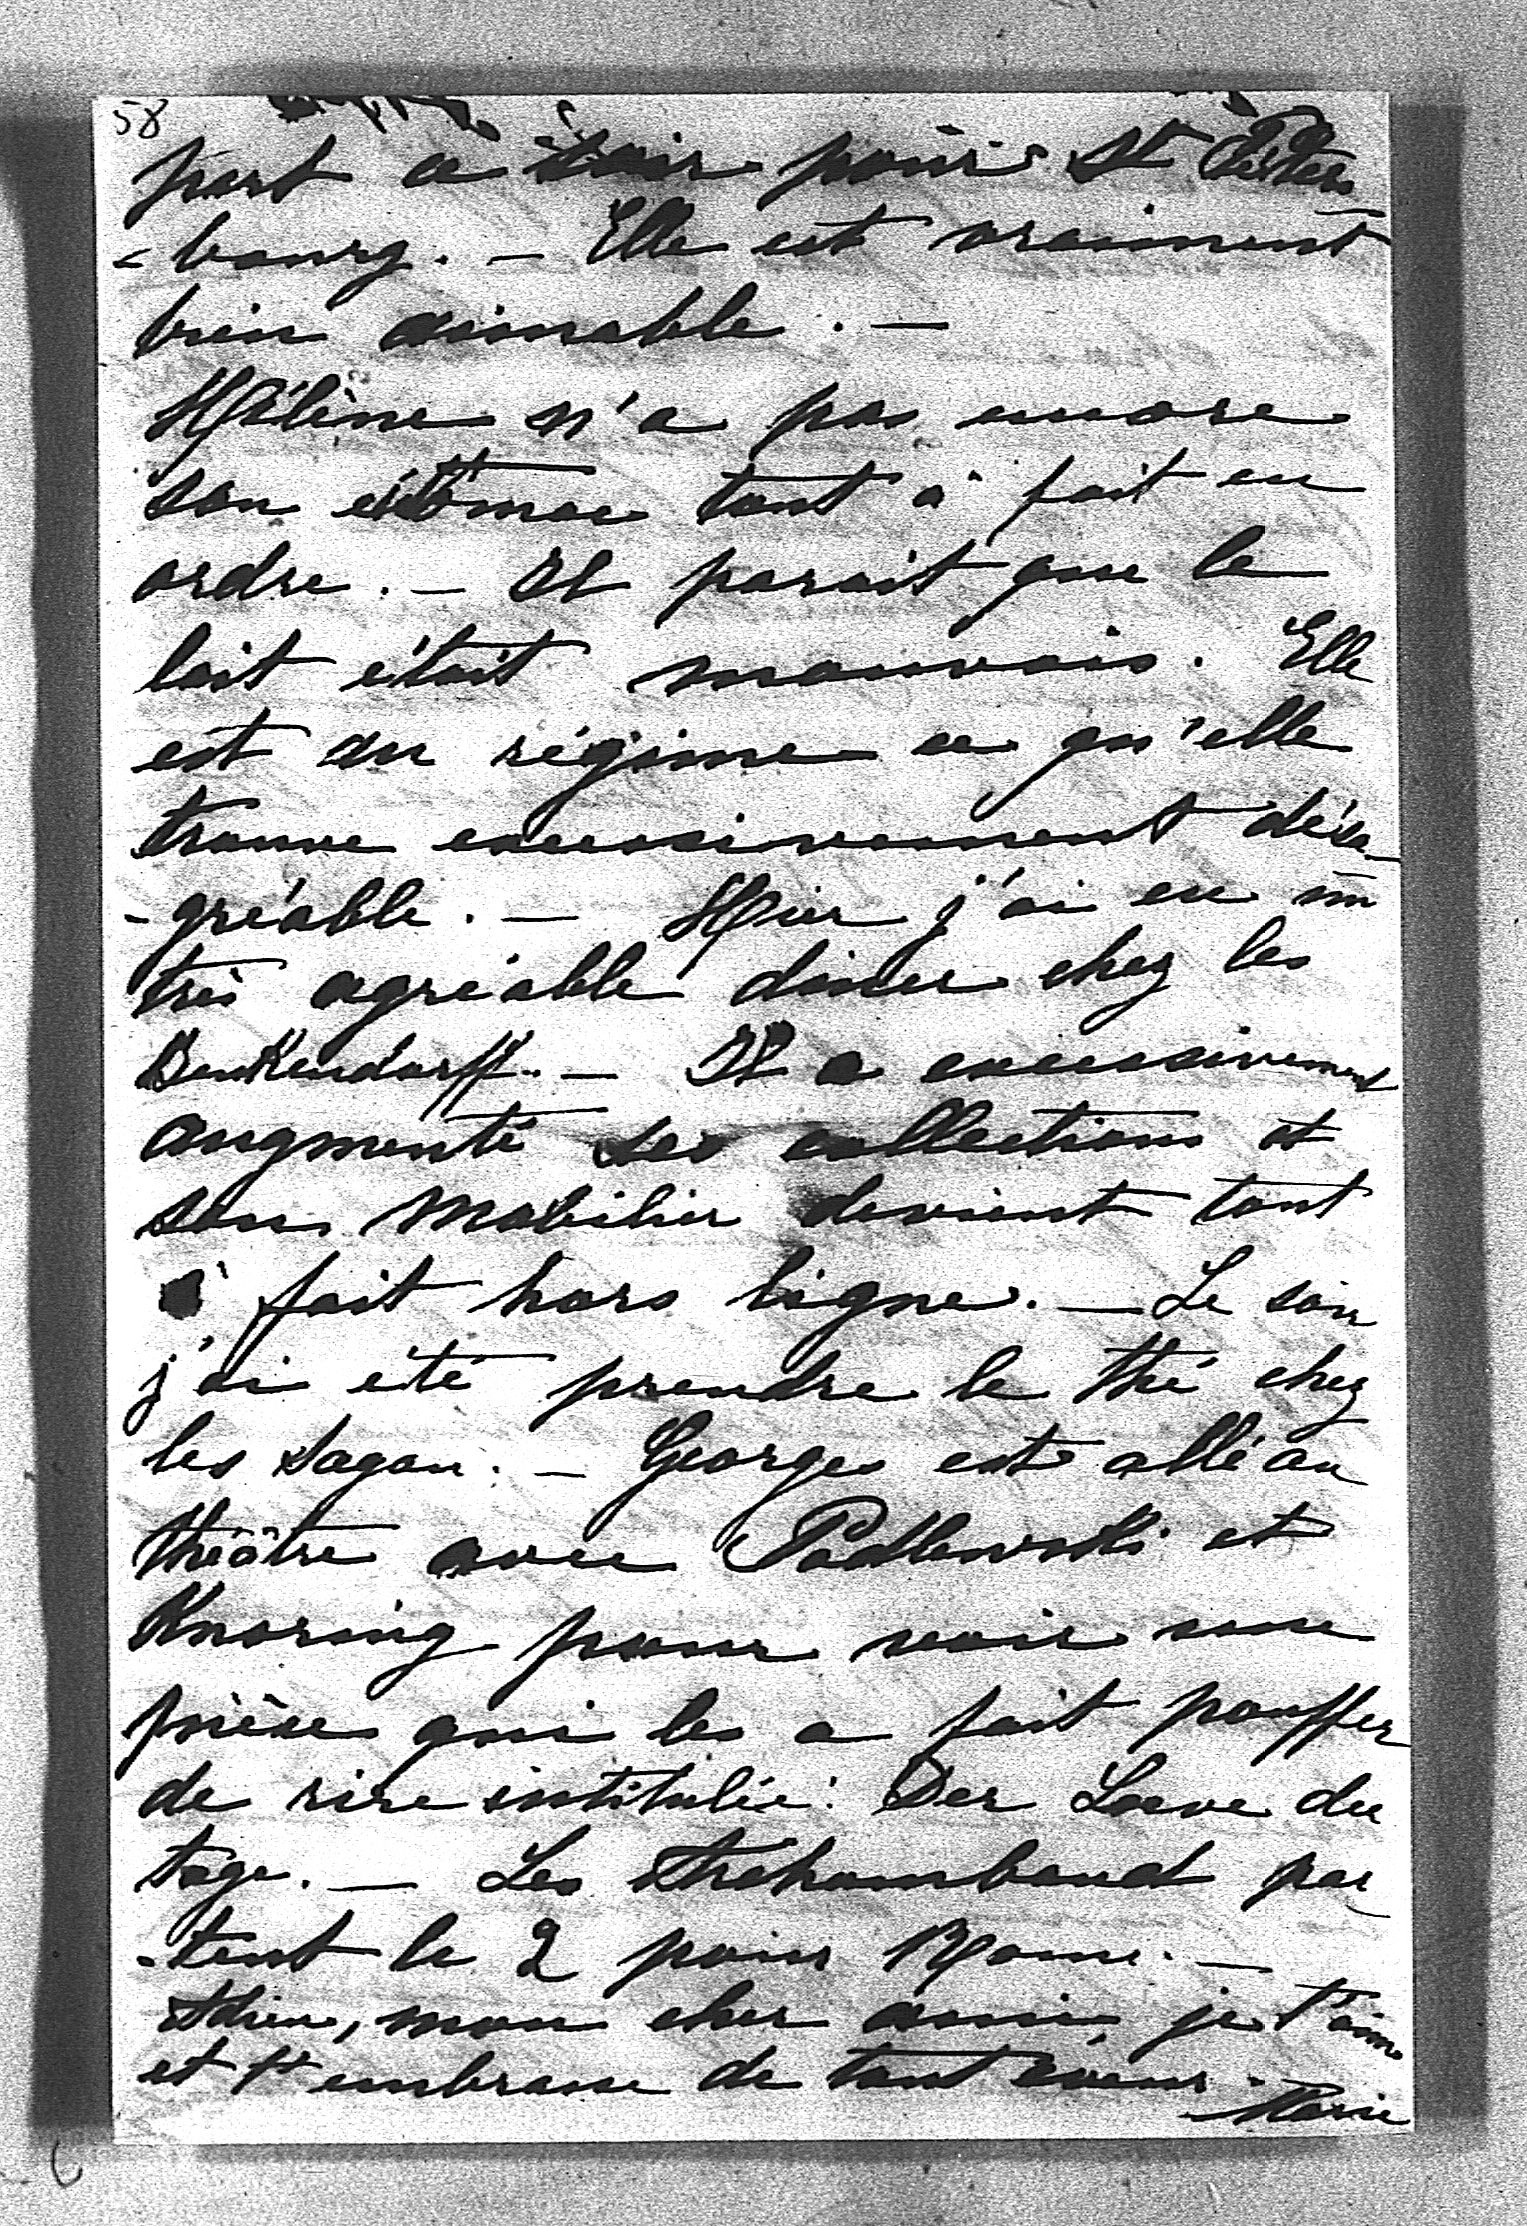 58
part ce soir pour St Péters
-bourg. — Elle est vraiment
bien aimable. —
Hélène n'a pas encore
son estomac tout à fait en
ordre. — Il parait que le
lait était mauvais. Elle
est au régime ce qu'elle
trouve excessivement désa-
-gréable. — Hier j'ai eu un
très agréable diner chez les
Benkendorff. — Il a excessivement
augmenté ses collections et
son mobilier devient tout
à fait hors ligne. — Le soir
j'ai été prendre le thé chez
les Sagan. — Georges est allé au
théâtre avec Padlewski et
Knoring pour voir une
pièce qui les a fait pouffer
de rire intitulée: Der
. — Les par
-tent le 2 pour Rome. —
Adieu, mon cher ami, je t'aime
et t'embrasse de tout coeur.
Marie